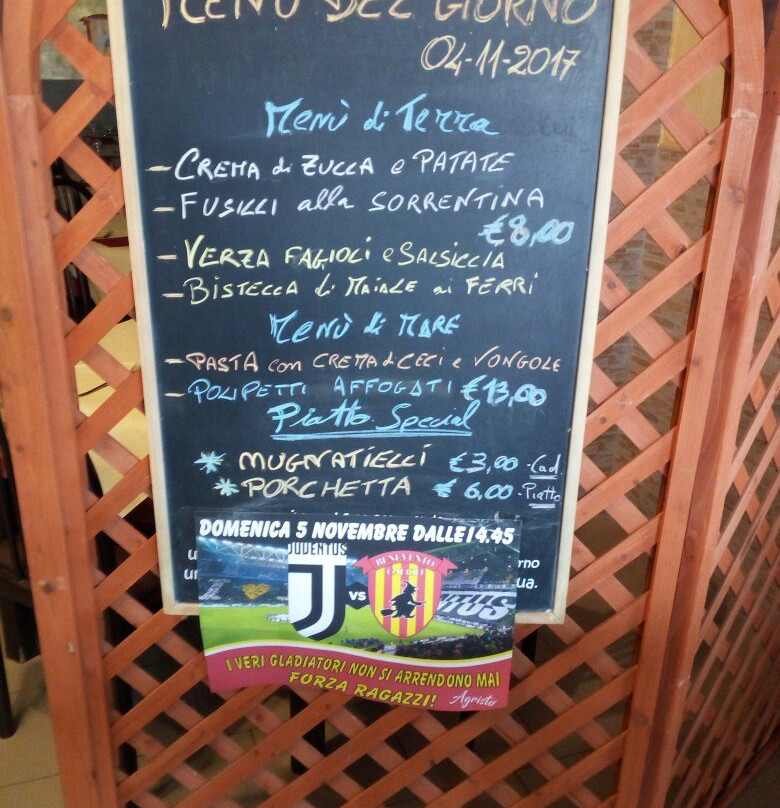 MENÙ DEL GIORNO
04-11-2017
Menù di Terra
- CREMA di ZUCCA e PATATE
- FUSILLI alla SORRENTINA
€8,00
- VERZA FAGIOLI e SALSICCIA
- BISTECCA di MAIALE ai FERRI
Menù di MARE
- PASTA con CREMA di CECI e VONGOLE
- POLIPETTI AFFOGATI €13,00
Piatto Special
* MUGNATIELLI €3,00 - Cad.
* PORCHETTA € 6,00 - Piatto
DOMENICA 5 NOVEMBRE DALLE 14.45
JUVENTUS
BENEVENTO
CALCIO
VS
I VERI GLADIATORI NON SI ARRENDONO MAI
FORZA RAGAZZI!
Agristo